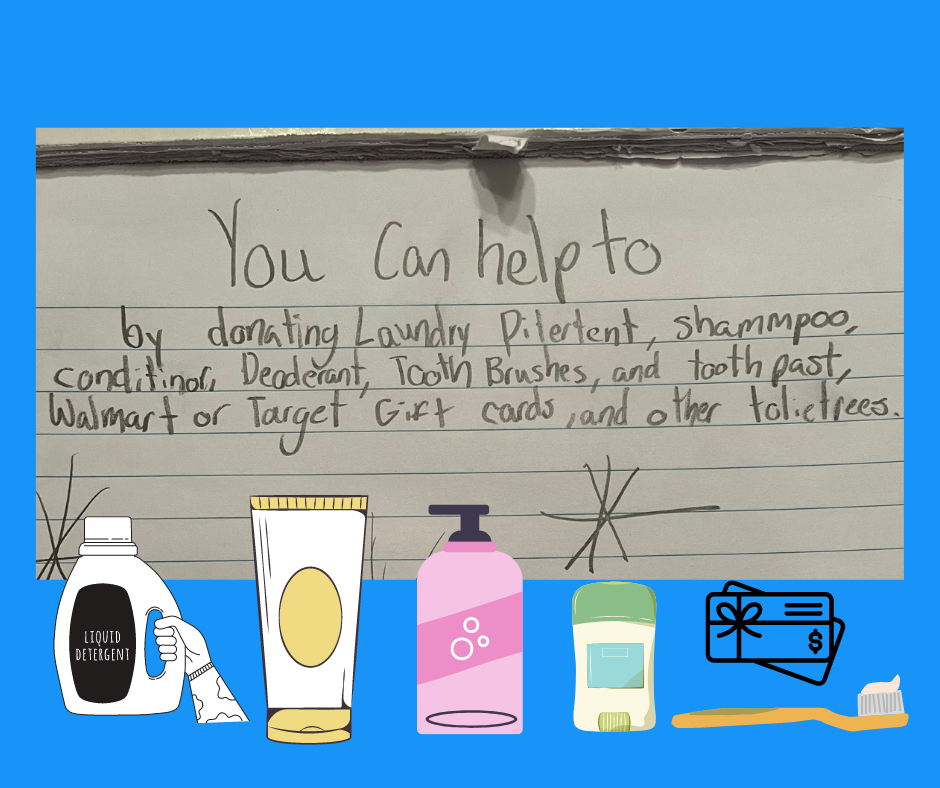 You Can help to
by donating Laundry Ditertent, shammpoo,
conditinor, Deoderant, Tooth Brushes, and tooth past,
Walmart or Target Gift cards, and other tolietrees.
LIQUID
DETERGENT
$